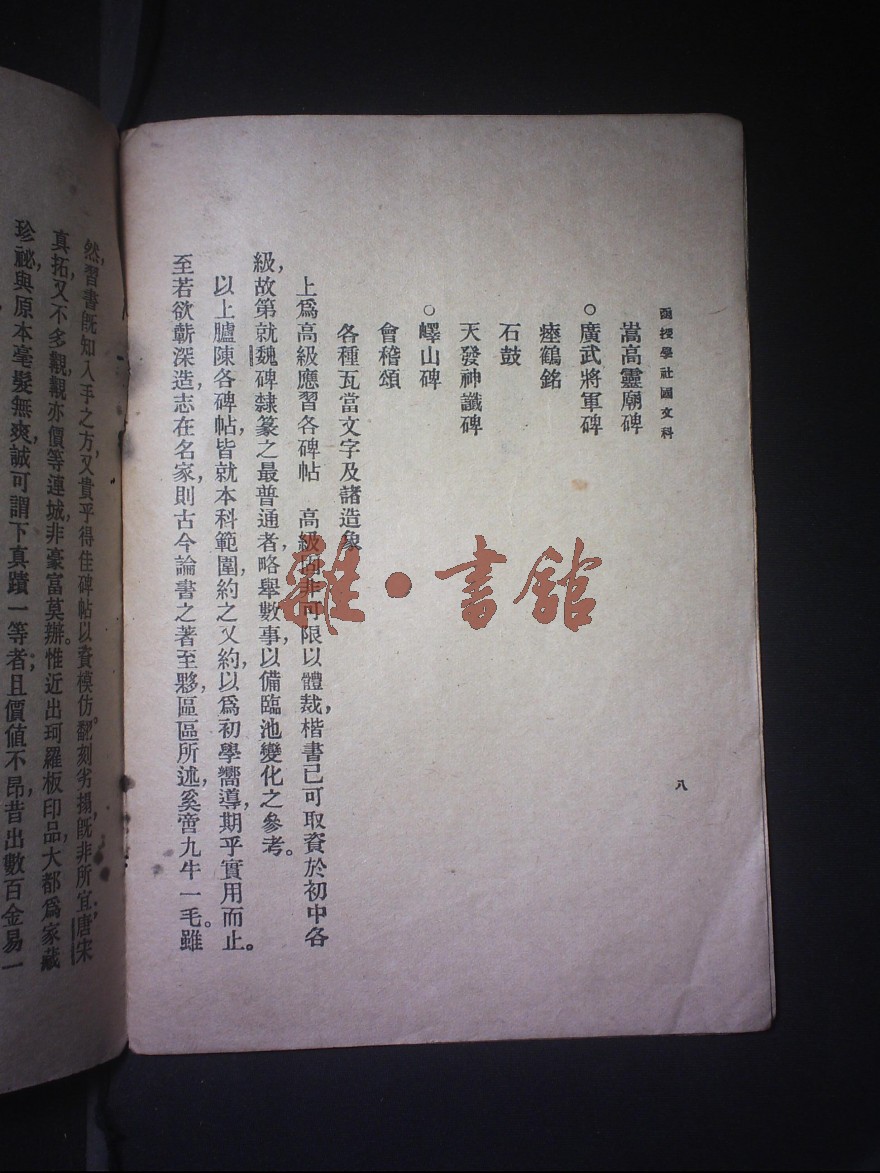 函授學社國文科
八
嵩高靈廟碑
○廣武將軍碑
瘞鶴銘
石鼓
天發神讖碑
○嶧山碑
會稽頌
各種瓦當文字及諸造象
上爲高級應習各碑帖　高級固非可限以體裁，楷書已可取資於初中各
級，故第就魏碑隸篆之最普通者，略舉數事，以備臨池變化之參考。
以上臚陳各碑帖，皆就本科範圍，約之又約，以爲初學嚮導，期乎實用而止。
至若欲蘄深造，志在名家，則古今論書之著至夥，區區所述，奚啻九牛一毛。雖
然，習書既知入手之方，又貴乎得佳碑帖以資模仿。翻刻劣搨，既非所宜；唐宋
真拓，又不多觀，觀亦價等連城，非豪富莫辦。惟近出珂羅板印品，大都爲家藏
珍祕，與原本毫髮無爽，誠可謂下真蹟一等者；且價值不昂，昔出數百金易一
雜·書館